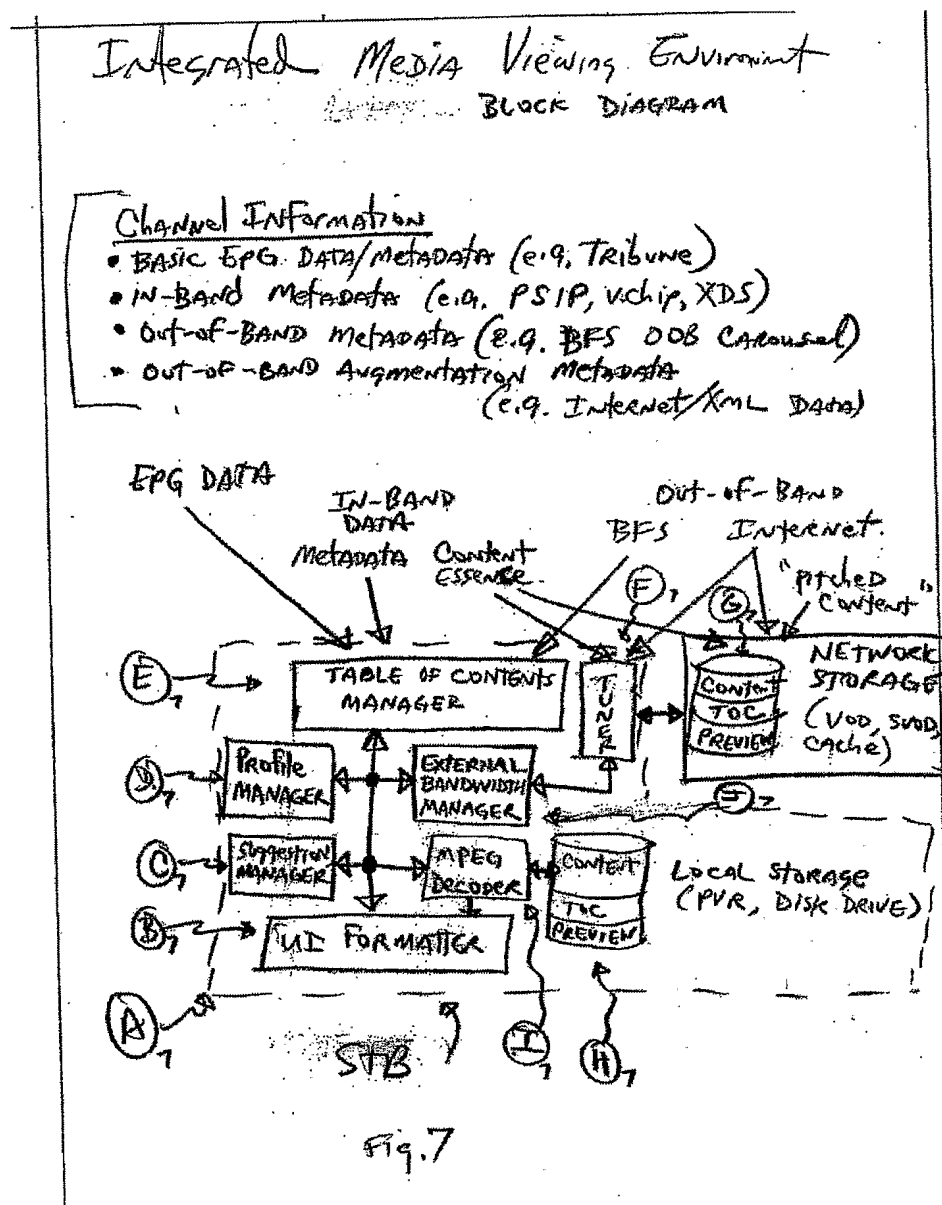 Integrated Media Viewing Envirnment
BLOCK DIAGRAM
Channel Information
• BASIC EPG DATA/METADATA (e.g. Tribune)
• IN-BAND METADATA (e.g. PSIP, V.chip, XDS)
• OUT-OF-BAND METADATA (e.g. BFS OOB CAROUSEL)
• OUT-OF-BAND AUGMENTATION METADATA
(e.g. INTERNET/XML DATA)
EPG DATA
IN-BAND
DATA
METADATA
CONTENT
ESSENCE
OUT-OF-BAND
BFS
INTERNET.
"PITCHED
CONTENT"
F7
G7
E7
TABLE OF CONTENTS
MANAGER
TUNER
CONTENT
TOC
PREVIEW
NETWORK
STORAGE
(VOD, SVOD,
CACHE)
D7
Profile
MANAGER
EXTERNAL
BANDWIDTH
MANAGER
J7
C7
SUGGESTION
MANAGER
MPEG
DECODER
CONTENT
TOC
PREVIEW
LOCAL STORAGE
(PVR, DISK DRIVE)
B7
UI FORMATTER
A7
STB
I7
H7
Fig. 7